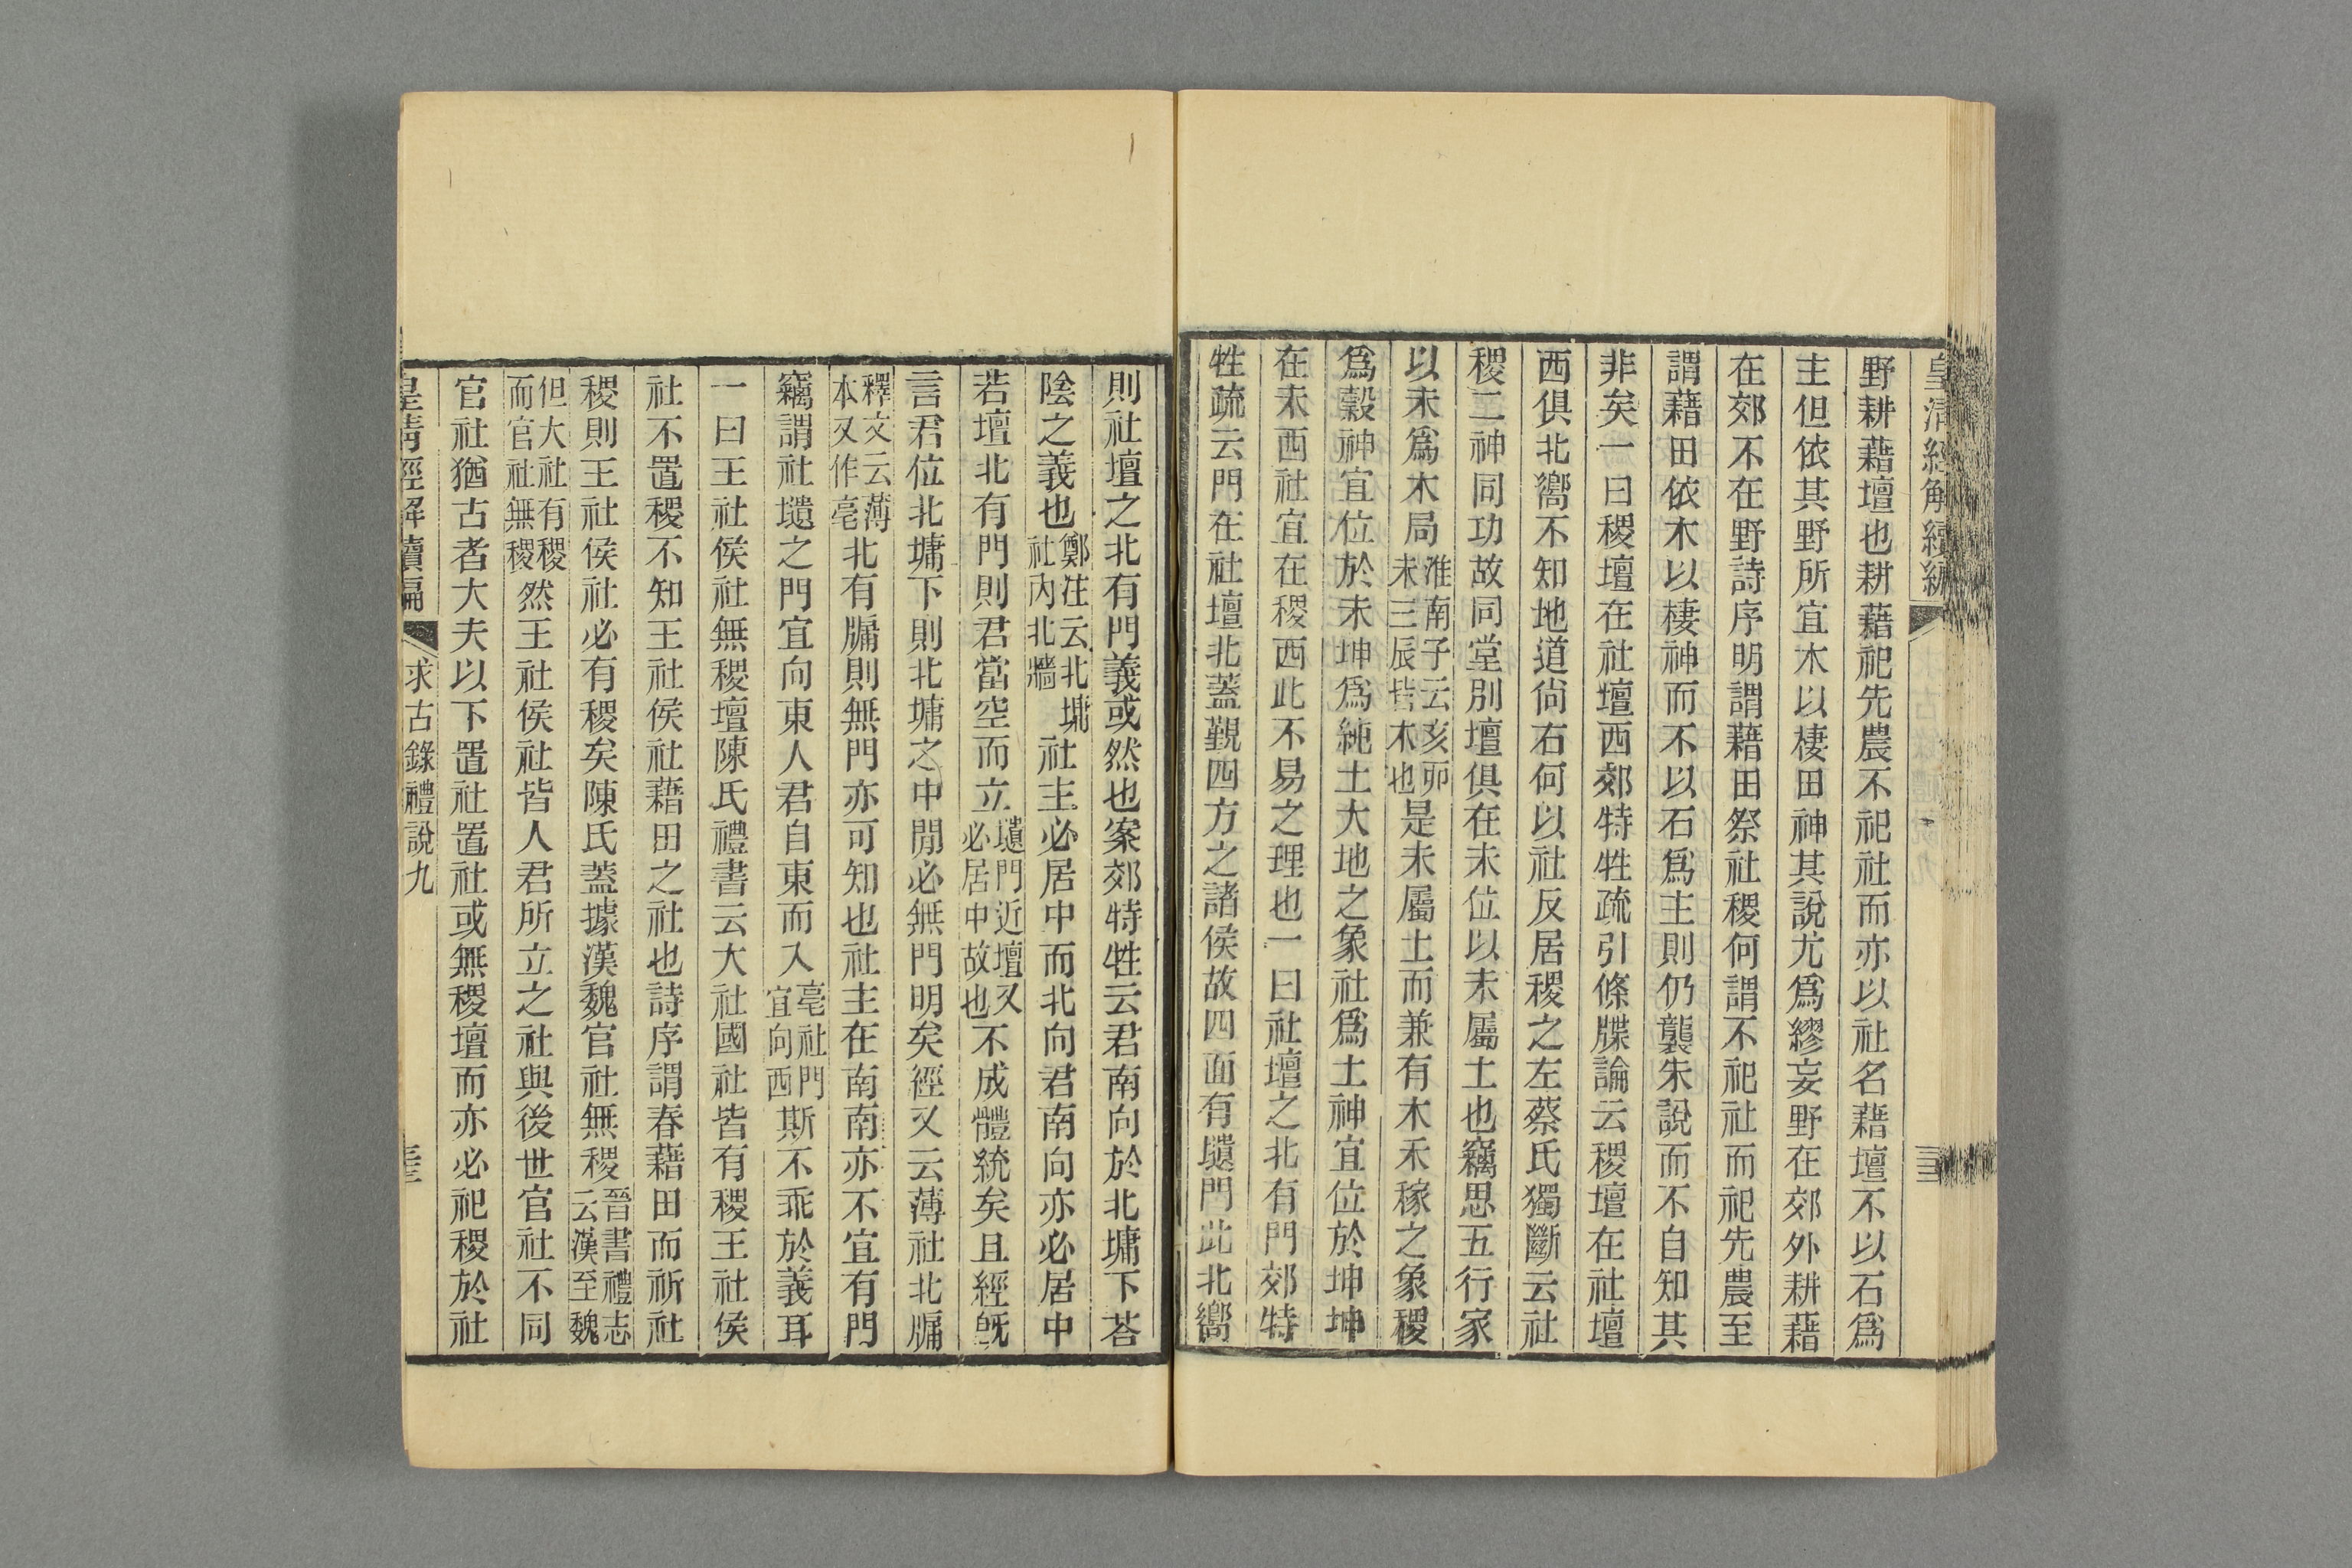 皇清經解續編
野耕藉壇也耕藉祀先農不祀社而亦以社名藉壇不以石爲
主但依其野所宜木以棲田神其說尤爲繆妄野在郊外耕藉
在郊不在野詩序明謂藉田祭社稷何謂不祀社而祀先農至
謂藉田依木以棲神而不以石爲主則仍襲朱說而不自知其
非矣一曰稷壇在社壇西郊特牲疏引條牒論云稷壇在社壇
西俱北嚮不知地道尙右何以社反居稷之左蔡氏獨斷云社
稷二神同功故同堂別壇俱在未位以未屬土也竊思五行家
以未爲木局淮南子云亥卯未三辰皆木也是未屬土而兼有木禾稼之象稷
爲穀神宜位於未坤爲純土大地之象社爲土神宜位於坤坤
在未西社宜在稷西此不易之理也一曰社壇之北有門郊特
牲疏云門在社壇北蓋覲四方之諸侯故四面有壝門此北嚮
則社壇之北有門義或然也案郊特牲云君南向於北墉下荅
陰之義也鄭注云北墉社內北牆社主必居中而北向君南向亦必居中
若壇北有門則君當空而立壝門近壇又必居中故也不成體統矣且經旣
言君位北墉下則北墉之中閒必無門明矣經又云薄社北牖
釋文云薄本又作亳北有牖則無門亦可知也社主在南南亦不宜有門
竊謂社壝之門宜向東人君自東而入亳社門宜向西斯不乖於義耳
一曰王社侯社無稷壇陳氏禮書云大社國社皆有稷王社侯
社不置稷不知王社侯社藉田之社也詩序謂春藉田而祈社
稷則王社侯社必有稷矣陳氏蓋據漢魏官社無稷晉書禮志云漢至魏
但大社有稷而官社無稷然王社侯社皆人君所立之社與後世官社不同
官社猶古者大夫以下置社置社或無稷壇而亦必祀稷於社
皇清經解續編
求古錄禮說九